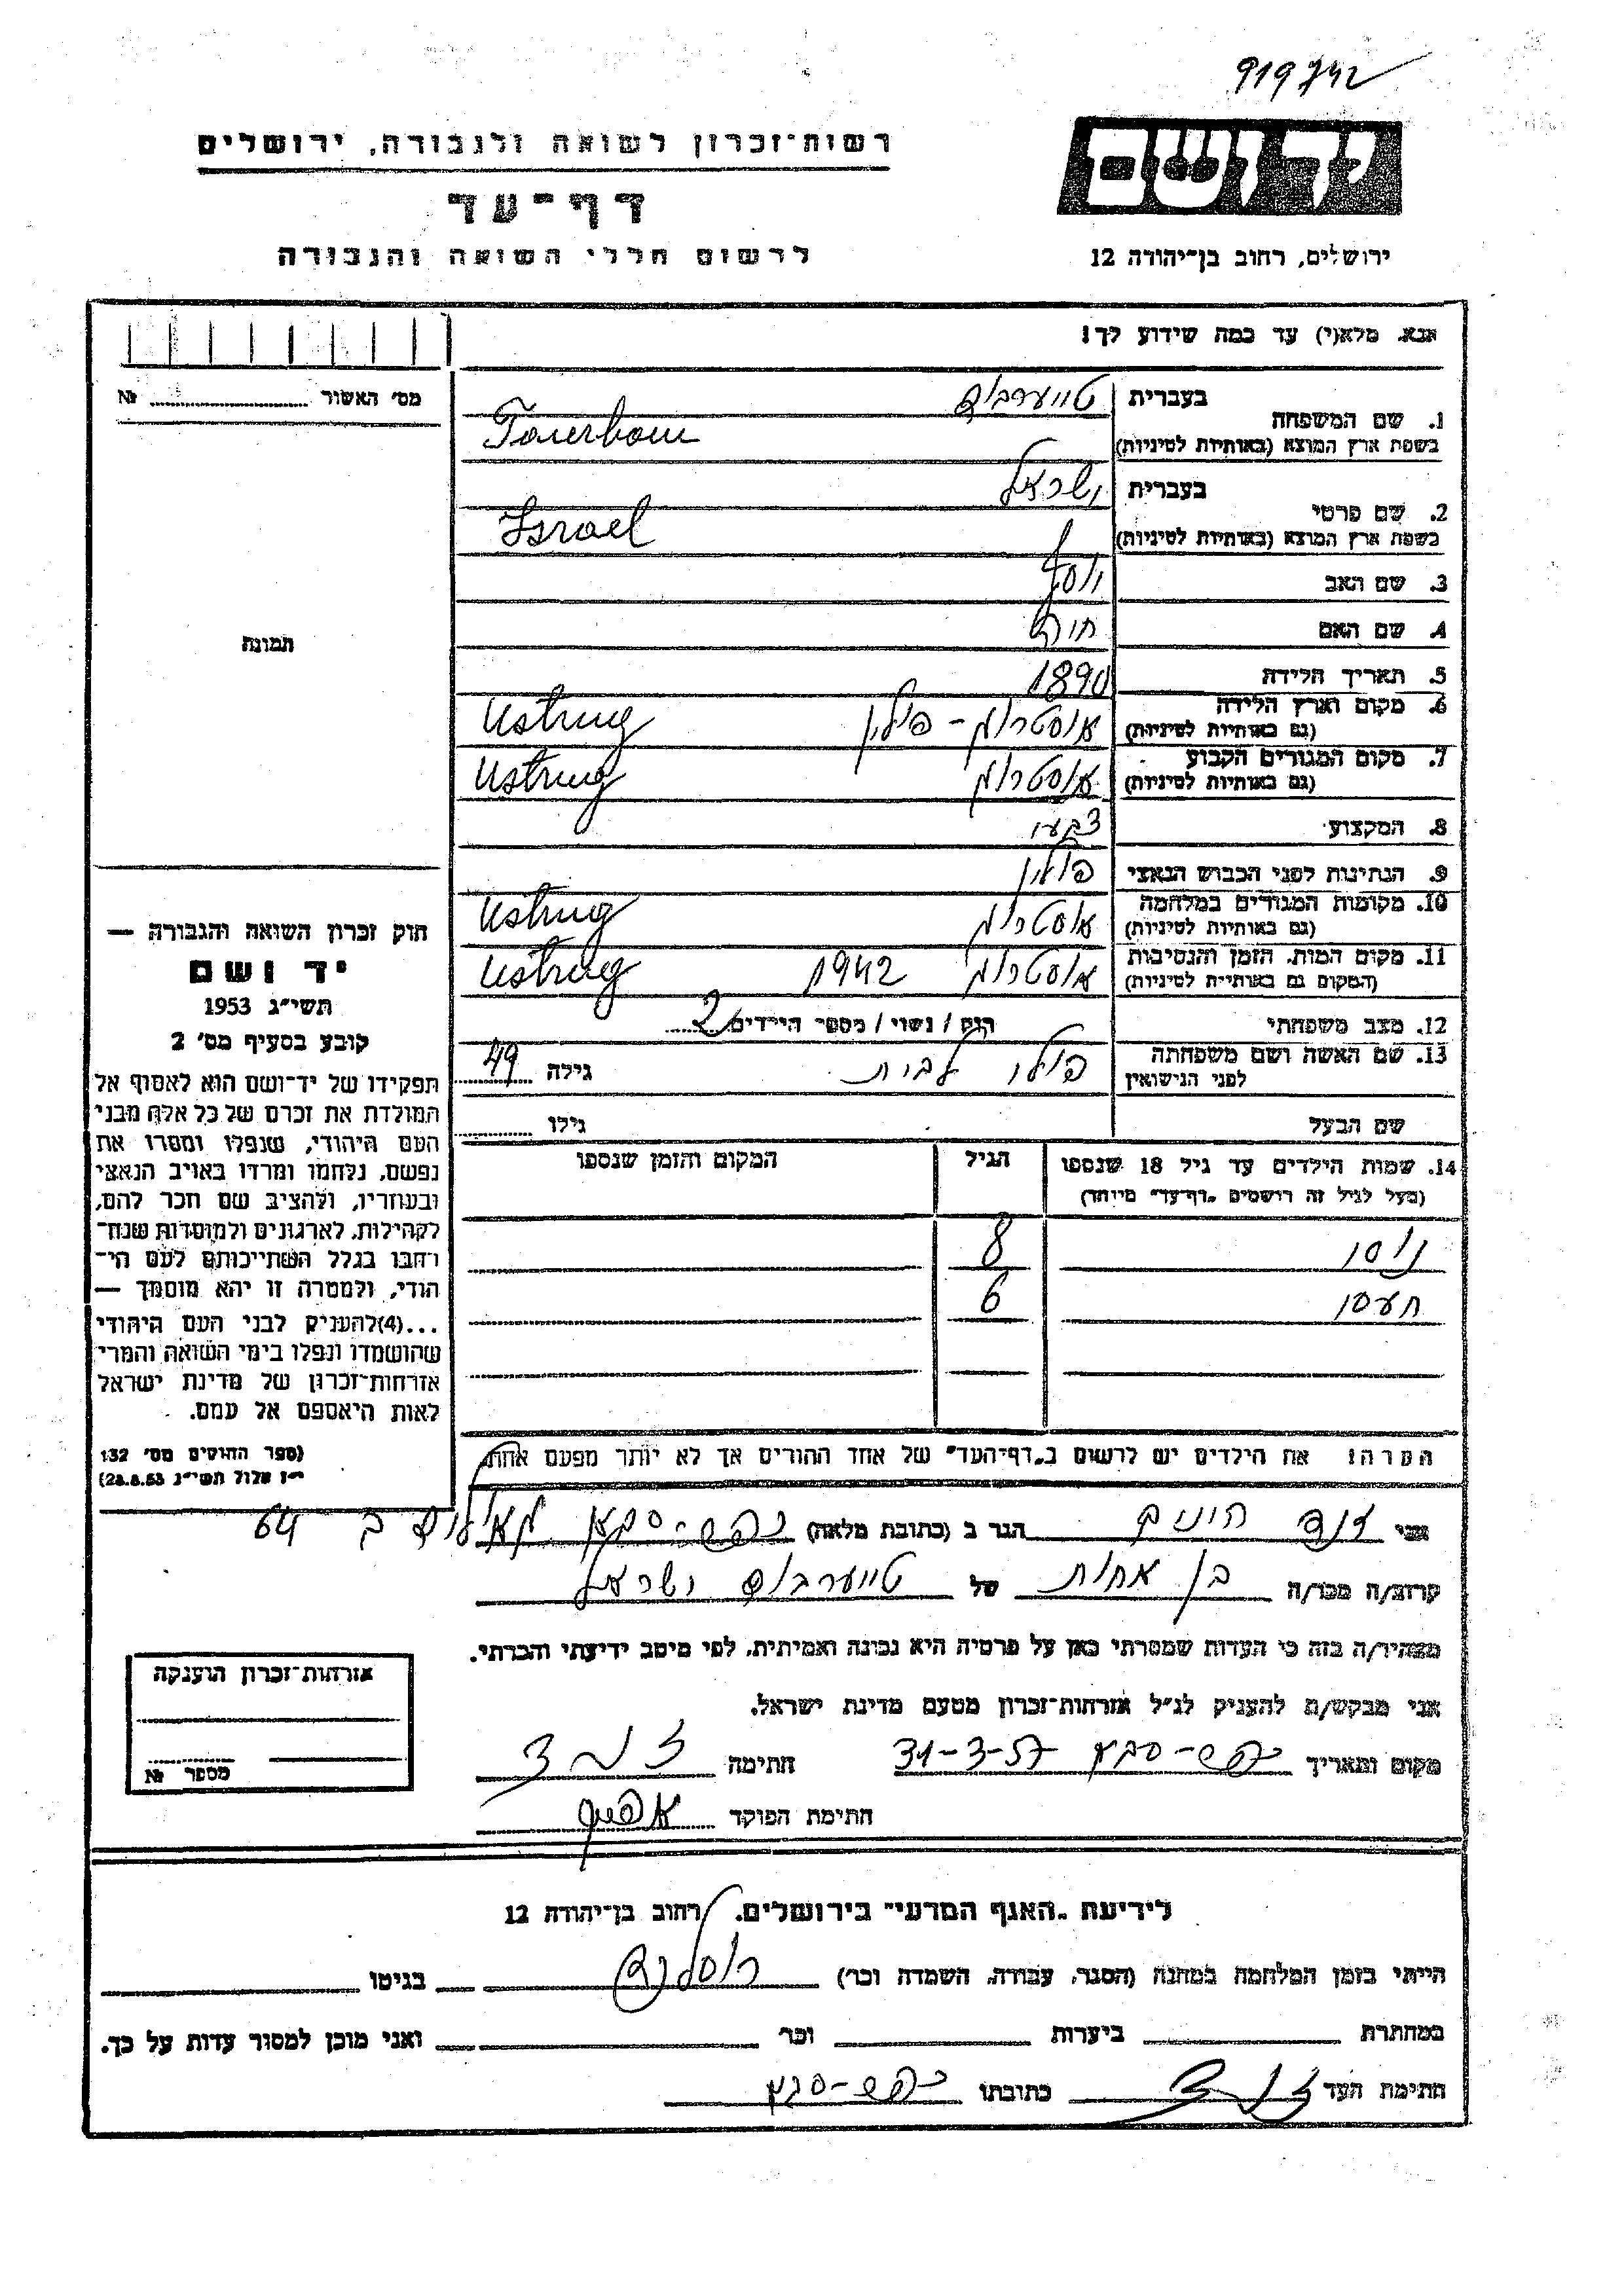 919742
יד ושם
רשות־זכרון לשואה ולגבורה, ירושלים
דף־עד
ירושלים, רחוב בן־יהודה 12
לרשום חללי השואה והגבורה
אנא, מלא(י) עד כמה שידוע לך!
מס׳ האשור № 
1. שם המשפחה
בעברית טייערבוים
בשפת ארץ המוצא (באותיות לטיניות) Tauerbaum
2. שם פרטי
בעברית ישראל
בשפת ארץ המוצא (באותיות לטיניות) Israel
3. שם האב יוסף
תמונה
4. שם האם חיה
5. תאריך הלידה 1890
6. מקום וארץ הלידה (גם באותיות לטיניות) אוסטרוג - פולין Ustrug
7. מקום המגורים הקבוע (גם באותיות לטיניות) אוסטרוג Ustrug
8. המקצוע צבעי
9. הנתינות לפני הכבוש הנאצי פולין
10. מקומות המגורים במלחמה (גם באותיות לטיניות) אוסטרוג Ustrug
11. מקום המות, הזמן והנסיבות (המקום גם באותיות לטיניות) אוסטרוג 1942 Ustrug
12. מצב משפחתי רוק / נשוי / מספר הילדים 2
13. שם האשה ושם משפחתה לפני הנישואין גילה 49
שם הבעל גילו
14. שמות הילדים עד גיל 18 שנספו
(מעל לגיל זה רושמים „דף־עד״ מיוחד)
הגיל
המקום והזמן שנספו
ניסן 8
6
הערה: את הילדים יש לרשום ב„דף־העד״ של אחד ההורים אך לא יותר מפעם אחת.
חוק זכרון השואה והגבורה —
יד ושם
תשי״ג 1953
קובע בסעיף מס׳ 2
תפקידו של יד־ושם הוא לאסוף אל
המולדת את זכרם של כל אלה מבני
העם היהודי, שנפלו ומסרו את
נפשם, נלחמו ומרדו באויב הנאצי
ובעוזריו, ולהציב שם וזכר להם,
לקהילות, לארגונים ולמוסדות שנח־
רבו בגלל השתייכותם לעם הי־
הודי, ולמטרה זו יהא מוסמך —
...(4) להעניק לבני העם היהודי
שהושמדו ונפלו בימי השואה והמרי
אזרחות־זכרון של מדינת ישראל
לאות היאספם אל עמם.
(ספר החוקים מס׳ 132
י״ז אלול תשי״ג 28.8.53)
אני הגר ב (כתובת מלאה) כפר-סבא 64
קרוב/ה מכר/ה בן אחות של טייערבוים ישראל
מצהיר/ה בזה כי העדות שמסרתי כאן על פרטיה היא נכונה ואמיתית, לפי מיטב ידיעתי והכרתי.
אני מבקש/ת להעניק לנ״ל אזרחות־זכרון מטעם מדינת ישראל.
מקום ותאריך כפר-סבא 31-3-57 חתימה
חתימת הפוקד
אזרחות־זכרון הוענקה
מספר №
לידיעת „האגף המדעי״ בירושלים, רחוב בן־יהודה 12
הייתי בזמן המלחמה במחנה (הסגר, עבודה, השמדה וכו׳) רוסלנד בגיטו
במחתרת ביערות וכו׳ ואני מוכן למסור עדות על כך.
חתימת העד כתובתו כפר-סבא